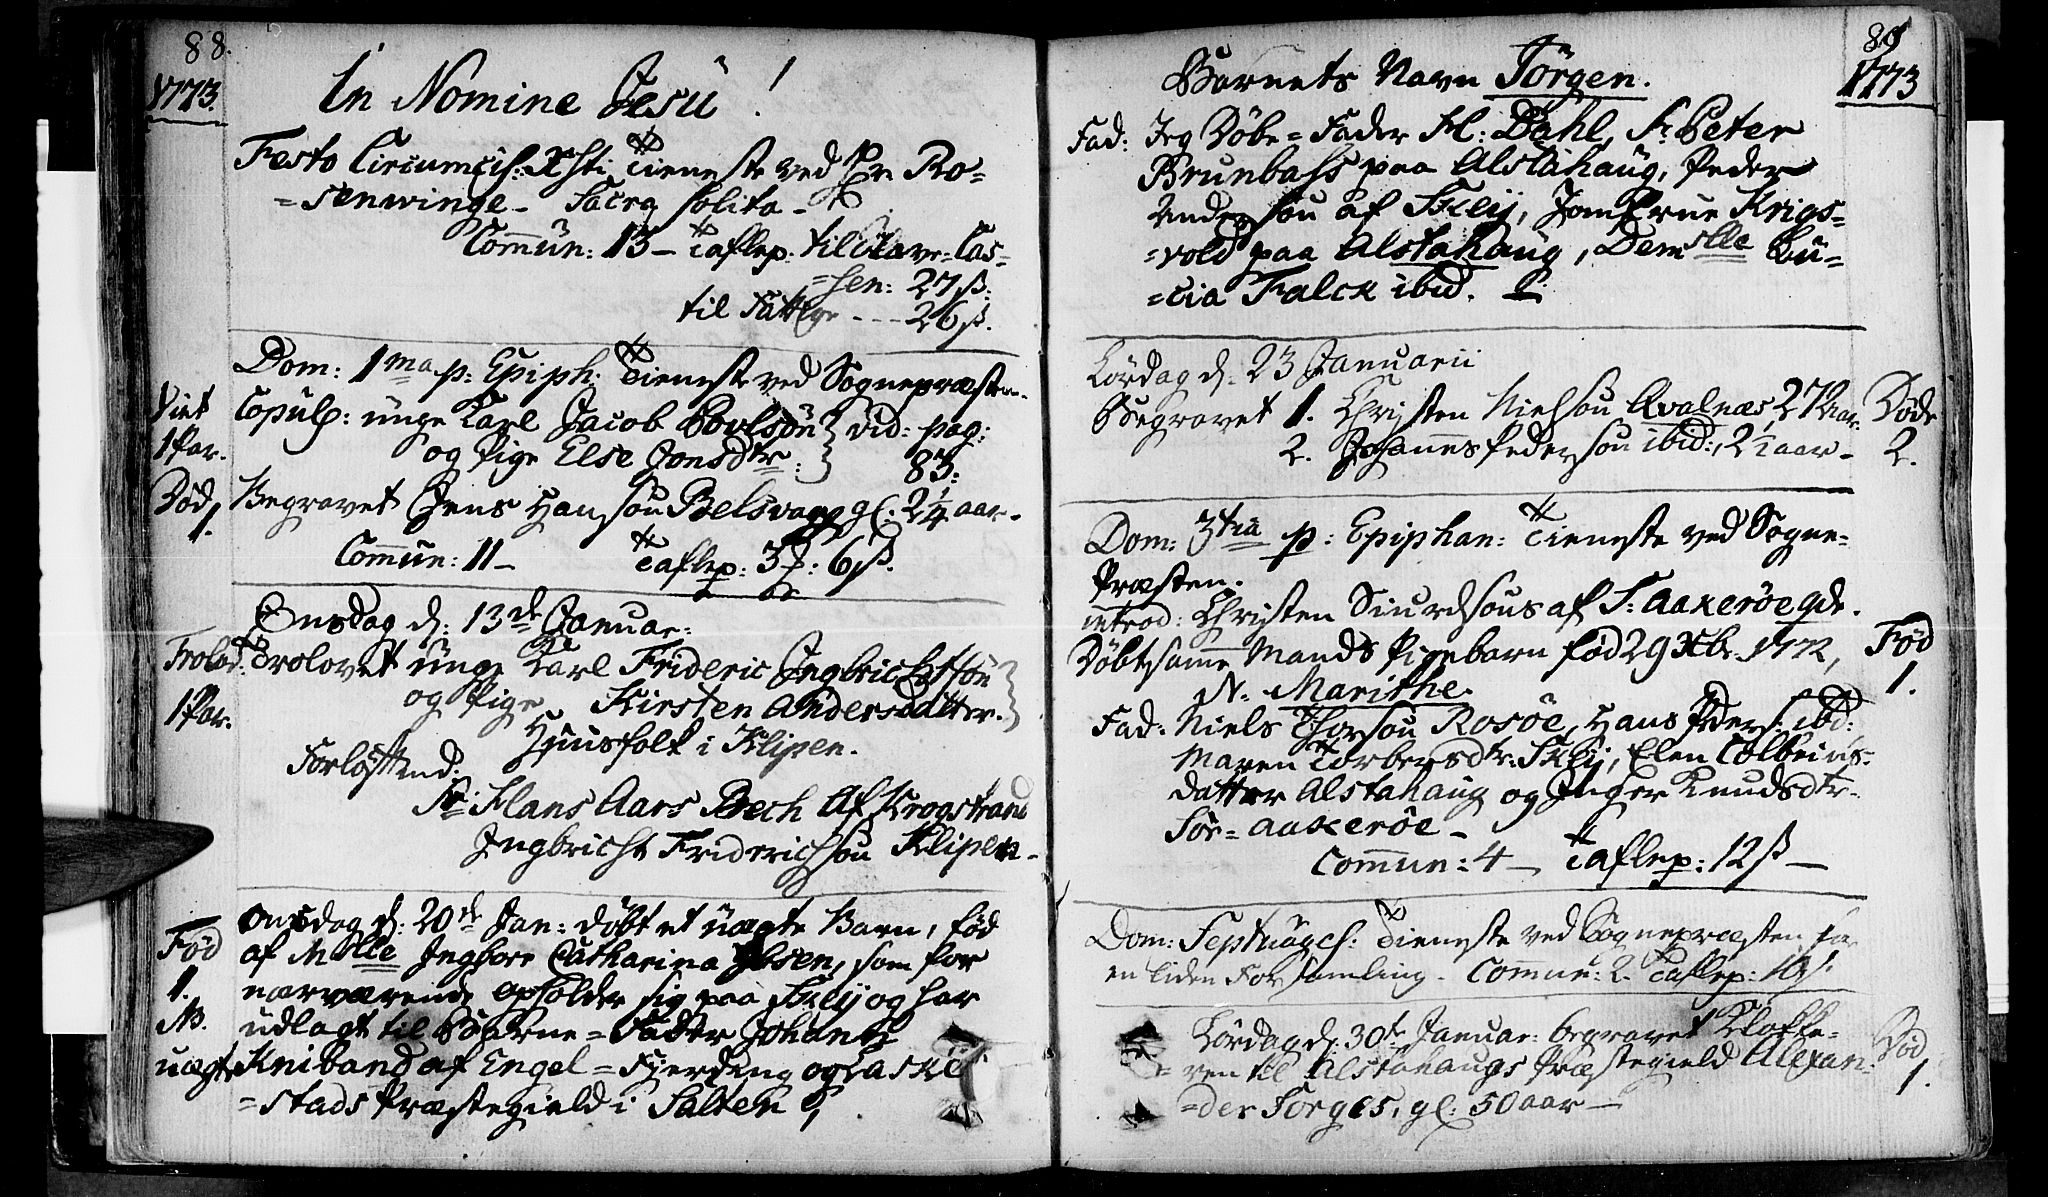 88.
1773.
In Nomine Jesu!
Festo Circumcis: Xsti Tieneste ved Hr. Ro=
=senwinge - Sacra solita -
Commun: 13 - Taflep: til Slave=Cas=
=sen: 27 ß:
til Fattige --- 26 ß.
Dom: 1ma p: Epiph: Tieneste ved Sognepræsten.
Viet
1 Par.
Copul: unge Karl Jacob Povlsøn } vid: pag:
og Pige Else Jonsdtr: } 83:
Død
1.
Begravet Jens Hansøn Belsvaag gl. 2¼ aar.
Commun: 11 - Taflep: 3 : 6 ß.
Onsdag d: 13de Januar:
Trolov:
1 Par.
Trolovet unge Karl Frideric Ingbrichtsøn
og Pige Kirsten Andersdatter.
Huusfolk i Klipen.
Forløftnd:
Sr: Hans Aars Bech af Krogstrand
Ingbricht Friderichsøn Klipen -
Fød
1.
NB.
uægte
Onsdag d: 20de Jan: døbt et uægte Barn, fød
af Mslle Ingborr Catharina Ibsen, som for
nærværende opholder sig paa Skeij og har
udlagt til Barne=Fader Johan
Kniband af Engel=Fjerding
=stads Præstegield i Salten
89
1773
Barnets Navn Jörgen.
Fad: Jeg Döbe=Fader H: Dahl, Sr. Peter
Brunbass paa Alstahaug, Peder
Andersøn af Skeij, Jomfrue Krigs=
=vold paa Alstahaug, Demslle Lu=
=cia Falck ibid.
Lördag d: 23 Januarii
Begravet 1. Christen Nielsøn Qvalnæs, 27 Aar.
2. Johannes Pedersøn ibid:, 2½ aar -
Døde
2.
Dom: 3tia p: Epiphan: Tieneste ved Sogne=
Præsten.
introd: Christen Siurdsøns af S: Aakerøe qde.
Döbt samme Mands Pigebarn fød 29 Xbr. 1772,
N: Marithe.
Fød
1.
Fad: Niels Thorsøn Rosøe, Hans Peders: ibd:
Maren Torbersdtr: Skeij, Elen Colbeins=
datter Alstahaug og Inger Knudsdtr.
Sör=Aakerøe -
Commun: 4 - Taflep: 12 ß -
Dom: Septuages: Tieneste ved Sognepræsten for
en liden Forsamling. Commun: 2. Taflep:
Lördag d: 30te Januar: begravet Klokke=
=ren til Alstahaugs Præstegield Alexan=
=der Torges, gl: 50 aar -
Død
1.